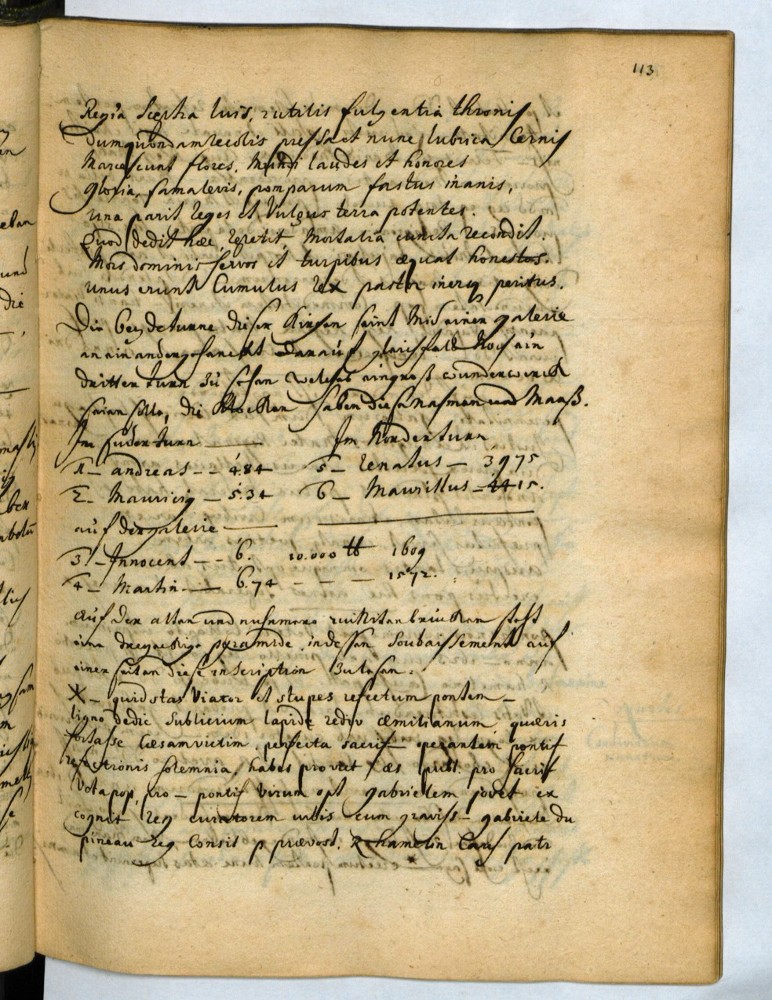 113
Regia Sceptra luis, rutilis fulgentia thronis
Dum quondam recolis pressa et nunc lubrica Cernis
Marcescunt flores, Mundi laudes et honores
Gloria, fama levis, pomparum fastus inanis,
una parit Reges et Vulgus terra potentes.
Quod dedit haec, repetit, Mortalia cuncta recondit.
Mors dominis servos et turpibus aequat honestos.
unus erunt Cumulus Rex pastor iners peritus.
Die beyde turne dieser Kirchen seint Mit einer galerie
an ein ander gehenckt darauf gleichfals noch ein
dritter turn zu sehen welches ein groß wunderwerck
seien solle, die Klocken haben diese Nahmen und Maaß.
Im suder turn — Im Norder turn
1 – andreas – – 4.84 5 – Renatus – 3975
2 – Mauricig – 5.34 6 – Maurillus – 4415.
auf der galerie
3 – Innocent – – 6. 10.000 tt 1609
4 – Martin. — 6.74 – – – 1572.
auf der alten und nuhmero brücken steht
eine dreyeckige pyramide, in dessen Soubaissement auf
einer seiten diese inscription zu lesen.
X – quid stas Viator et stupes refectum pontem –
ligno dedic Sublicium lapide rediv aemilianum, quaeris
fortasse Caesam victim, perfecta sacrif operantem pontif
refectionis solemnia, habes pro vict aes publ. pro sacrif
Vota pop, pro – pontif Virum opt gabrielem jouet ex
cognit Reg curatorem urbis cum graviss – gabriele du
pineau Reg Consil p praevost. R hamelin Cars patr